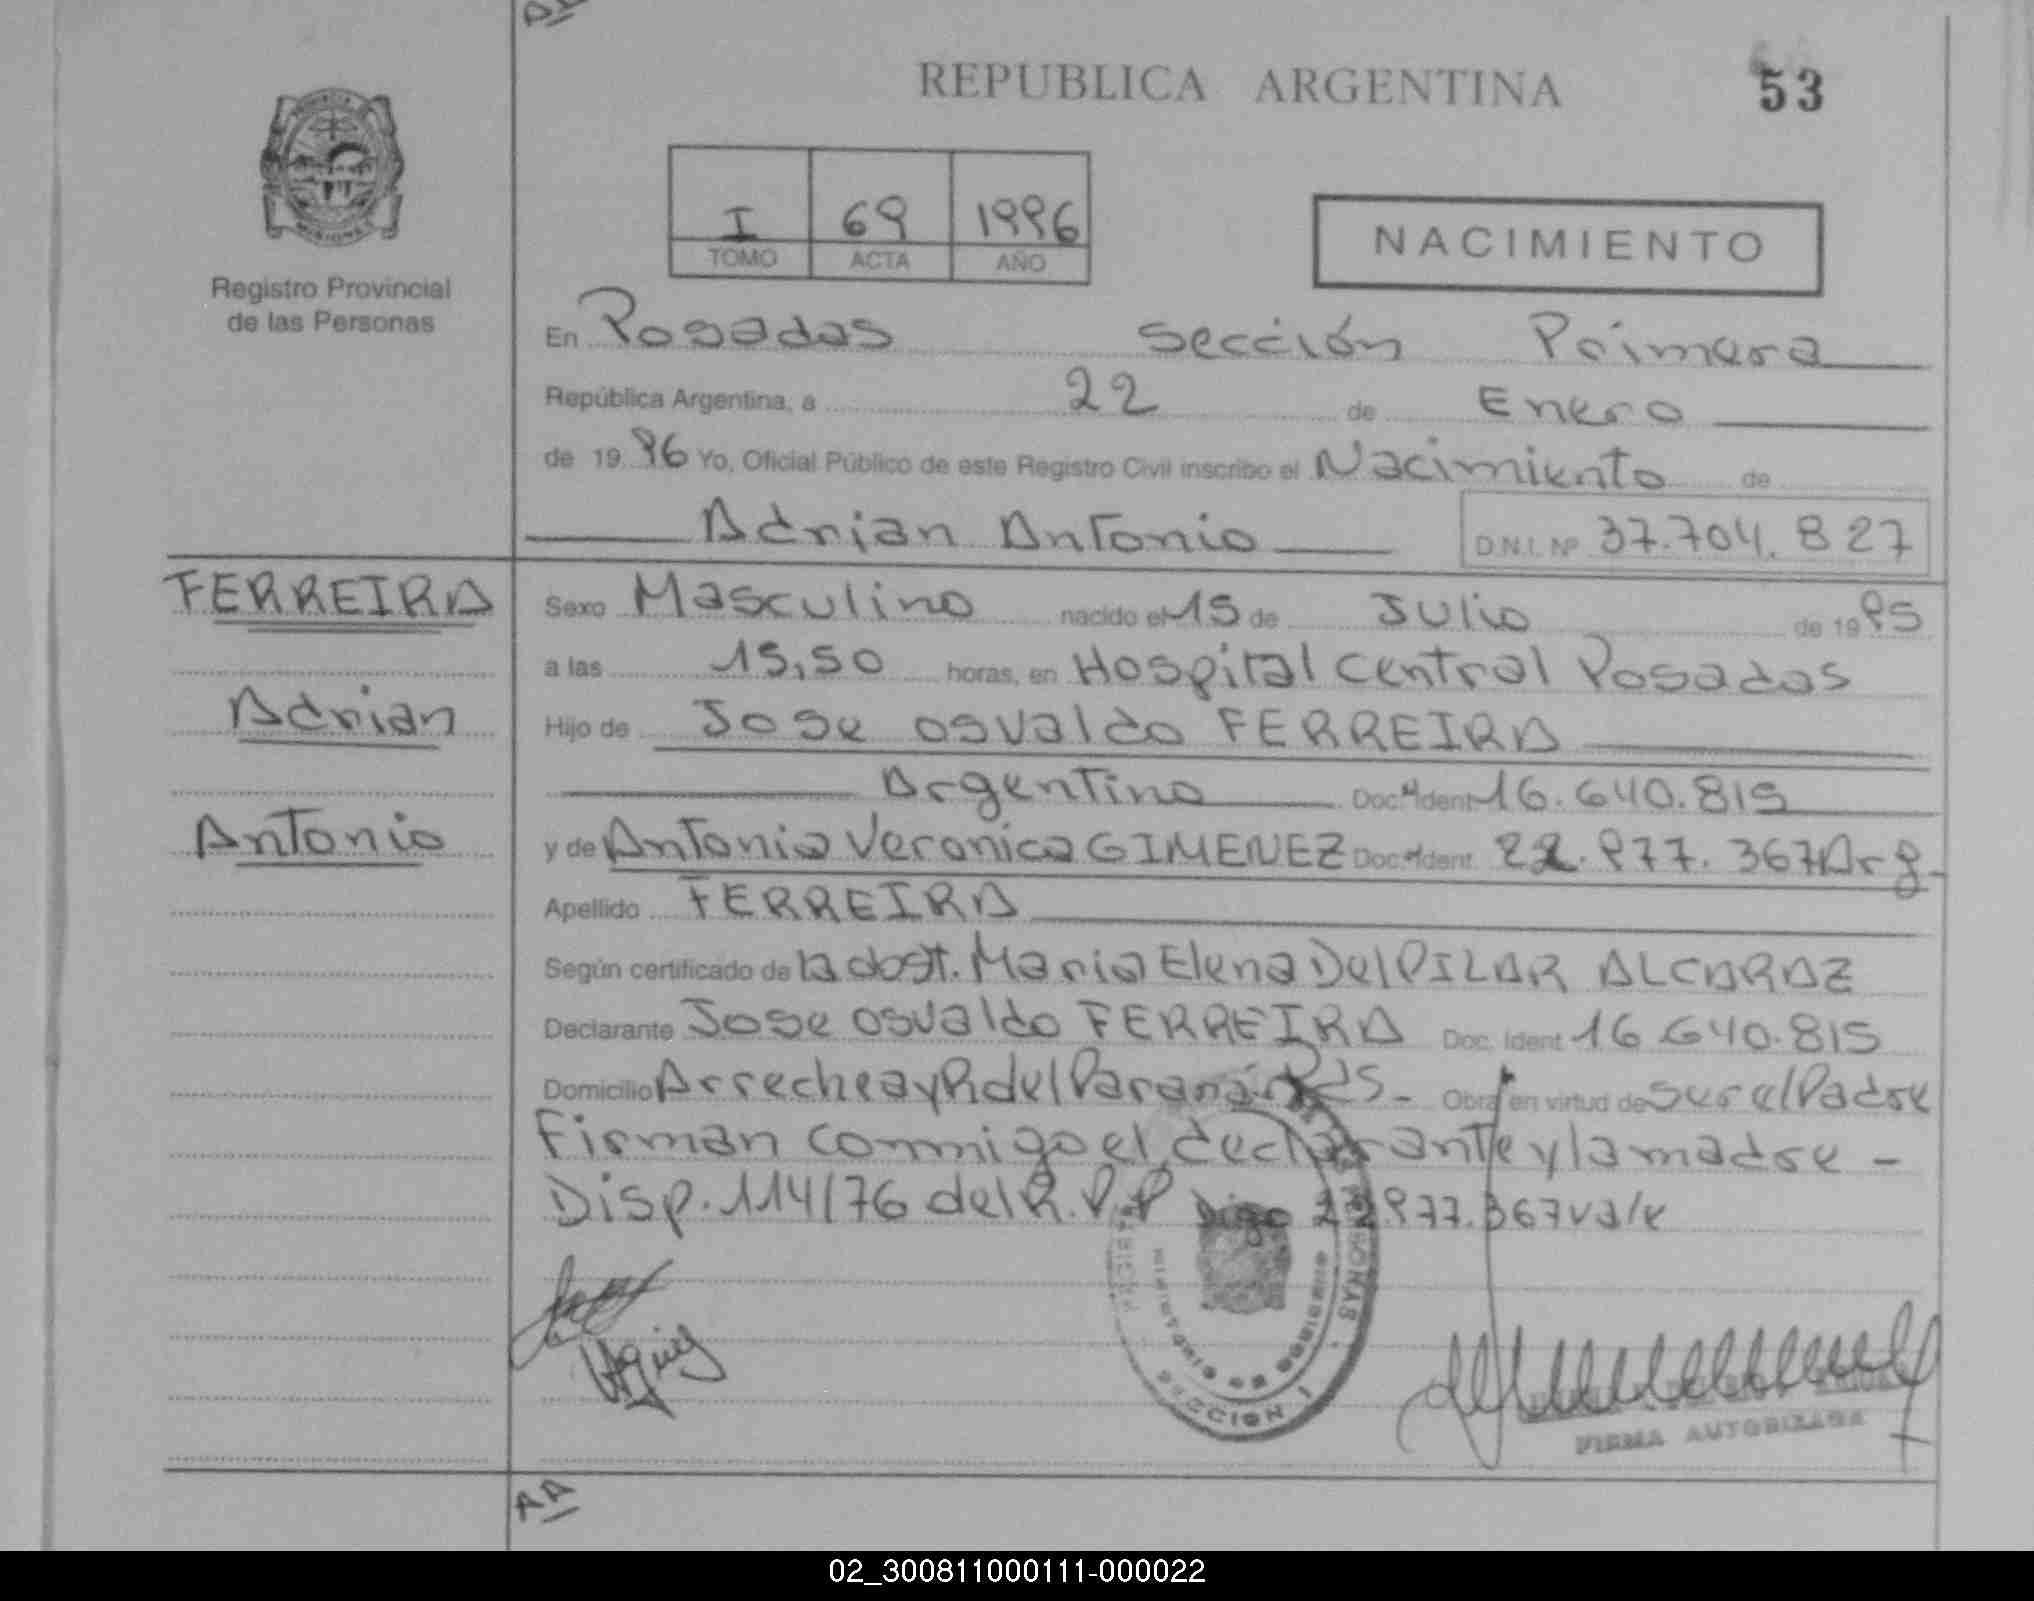 REPUBLICA ARGENTINA
53
I 69 1996
TOMO ACTA AÑO
NACIMIENTO
MISIONES
Registro Provincial
de las Personas
En Posadas sección Primera
República Argentina, a 22 de Enero
de 19 96 Yo, Oficial Público de este Registro Civil inscribo el Nacimiento de
Adrian Antonio D.N.I. Nº 37.704.827
FERREIRA
Adrian
Antonio
Sexo Masculino nacido el 15 de Julio de 19 95
a las 15,50 horas, en Hospital Central Posadas
Hijo de Jose Osvaldo FERREIRA
Argentino Doc. Ident 16.640.815
y de Antonia Veronica GIMENEZ Doc. Ident. 22.977.367 Arg.
Apellido FERREIRA
Según certificado de la obst. Maria Elena Del PILAR ALCARAZ
Declarante Jose Osvaldo FERREIRA Doc. Ident 16.640.815
Domicilio Arrechea y R del Paraná Pdas - Obra en virtud de ser el Padre
Firman conmigo el declarante y la madre -
Disp. 114/76 del R.P.P Digo 22.977.367 vale
SECCION I
FIRMA AUTORIZADA
AA
02_300811000111-000022